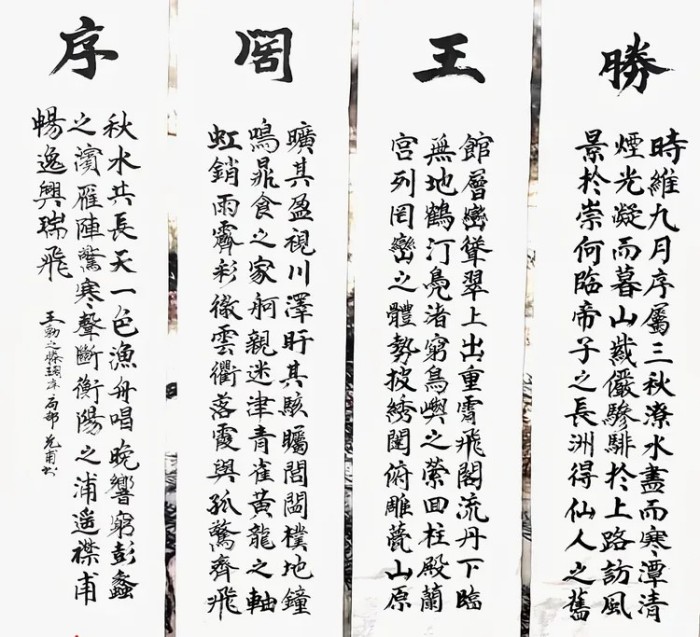 勝
時維九月序屬三秋潦水盡而寒潭清
煙光凝而暮山紫儼驂騑於上路訪風
景於崇何臨帝子之長洲得仙人之舊
王
館層巒聳翠上出重霄飛閣流丹下臨
無地鶴汀鳧渚窮島嶼之縈回柱殿蘭
宮列罔巒之體勢披綉闥俯雕甍山原
閣
曠其盈視川澤盱其駭矚閭閻樸地鐘
鳴鼎食之家舸親迷津青雀黃龍之軸
虹銷雨霽彩徹雲衢落霞與孤鶩齊飛
序
秋水共長天一色漁舟唱晚響窮彭蠡
之濱雁陣驚寒聲斷衡陽之浦遙襟甫
暢逸興瑞飛
王勃之滕王閣序局部